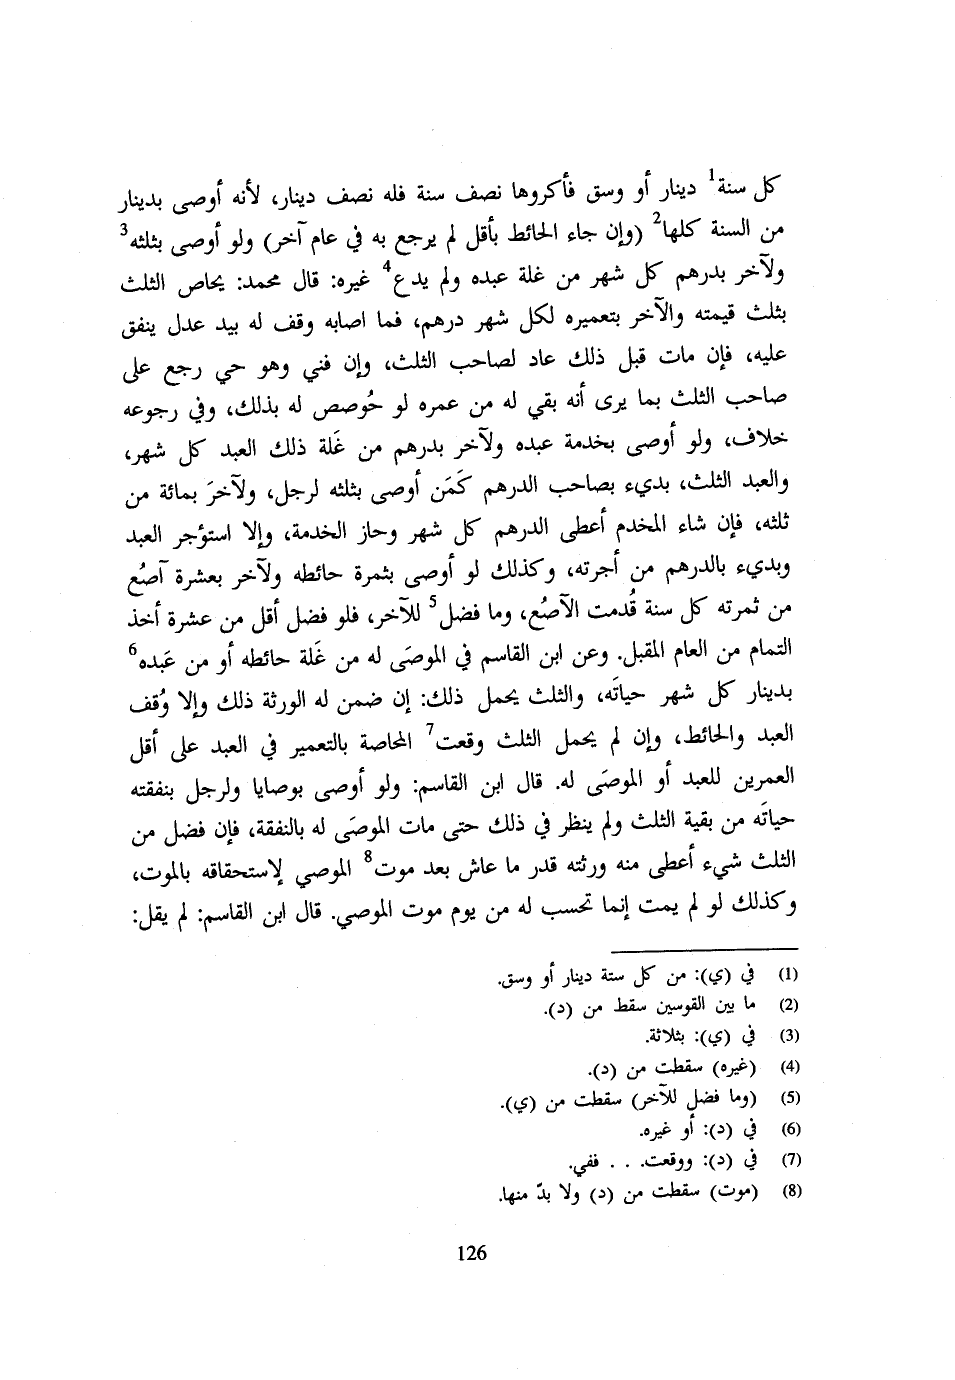 كل سنة1 دينار أو وسق فأكروها نصف سنة فله نصف دينار، لأنه أوصى بدينار
من السنة كلها2 (وإن جاء الحائط بأقل لم يرجع به في عام آخر) ولو أوصى بثلثه3
ولآخر بدرهم كل شهر من غلة عبده ولم يدع4 غيره: قال محمد: يحاص الثلث
بثلث قيمته والآخر بتعميره لكل شهر درهم، فما اصابه وقف له بيد عدل ينفق
عليه، فإن مات قبل ذلك عاد لصاحب الثلث، وإن فني وهو حي رجع على
صاحب الثلث بما يرى أنه بقي له من عمره لو حُوصص له بذلك، وفي رجوعه
خلاف، ولو أوصى بخدمة عبده ولآخر بدرهم من غَلة ذلك العبد كل شهر،
والعبد الثلث، بديء بصاحب الدرهم كَمَن أوصى بثلثه لرجل، ولآخرَ بمائة من
ثلثه، فإن شاء المخدم أعطى الدرهم كل شهر وحاز الخدمة، وإلا استؤجر العبد
وبديء بالدرهم من أجرته، وكذلك لو أوصى بثمرة حائطه ولآخر بعشرة آصُع
من ثمرته كل سنة قُدمت الآصُع، وما فضل5 للآخر، فلو فضل أقل من عشرة أخذ
التمام من العام المقبل. وعن ابن القاسم في الموصَى له من غَلة حائطه أو من عَبده6
بدينار كل شهر حياتَه، والثلث يحمل ذلك: إن ضمن له الورثة ذلك وإلا وُقف
العبد والحائط، وإن لم يحمل الثلث وقعت7 المحاصة بالتعمير في العبد على أقل
العمرين للعبد أو الموصَى له. قال ابن القاسم: ولو أوصى بوصايا ولرجل بنفقته
حياتَه من بقية الثلث ولم ينظر في ذلك حتى مات الموصَى له بالنفقة، فإن فضل من
الثلث شيء أعطى منه ورثته قدر ما عاش بعد موت8 الموصي لإستحقاقه بالموت،
وكذلك لو لم يمت إنما تحسب له من يوم موت الموصي. قال ابن القاسم: لم يقل:
(1) في (ي): من كل ستة دينار أو وسق.
(2) ما بين القوسين سقط من (د).
(3) في (ي): بثلاثة.
(4) (غيره) سقطت من (د).
(5) (وما فضل للآخر) سقطت من (ي).
(6) في (د): أو غيره.
(7) في (د): ووقعت. . . ففي.
(8) (موت) سقطت من (د) ولا بدّ منها.
126